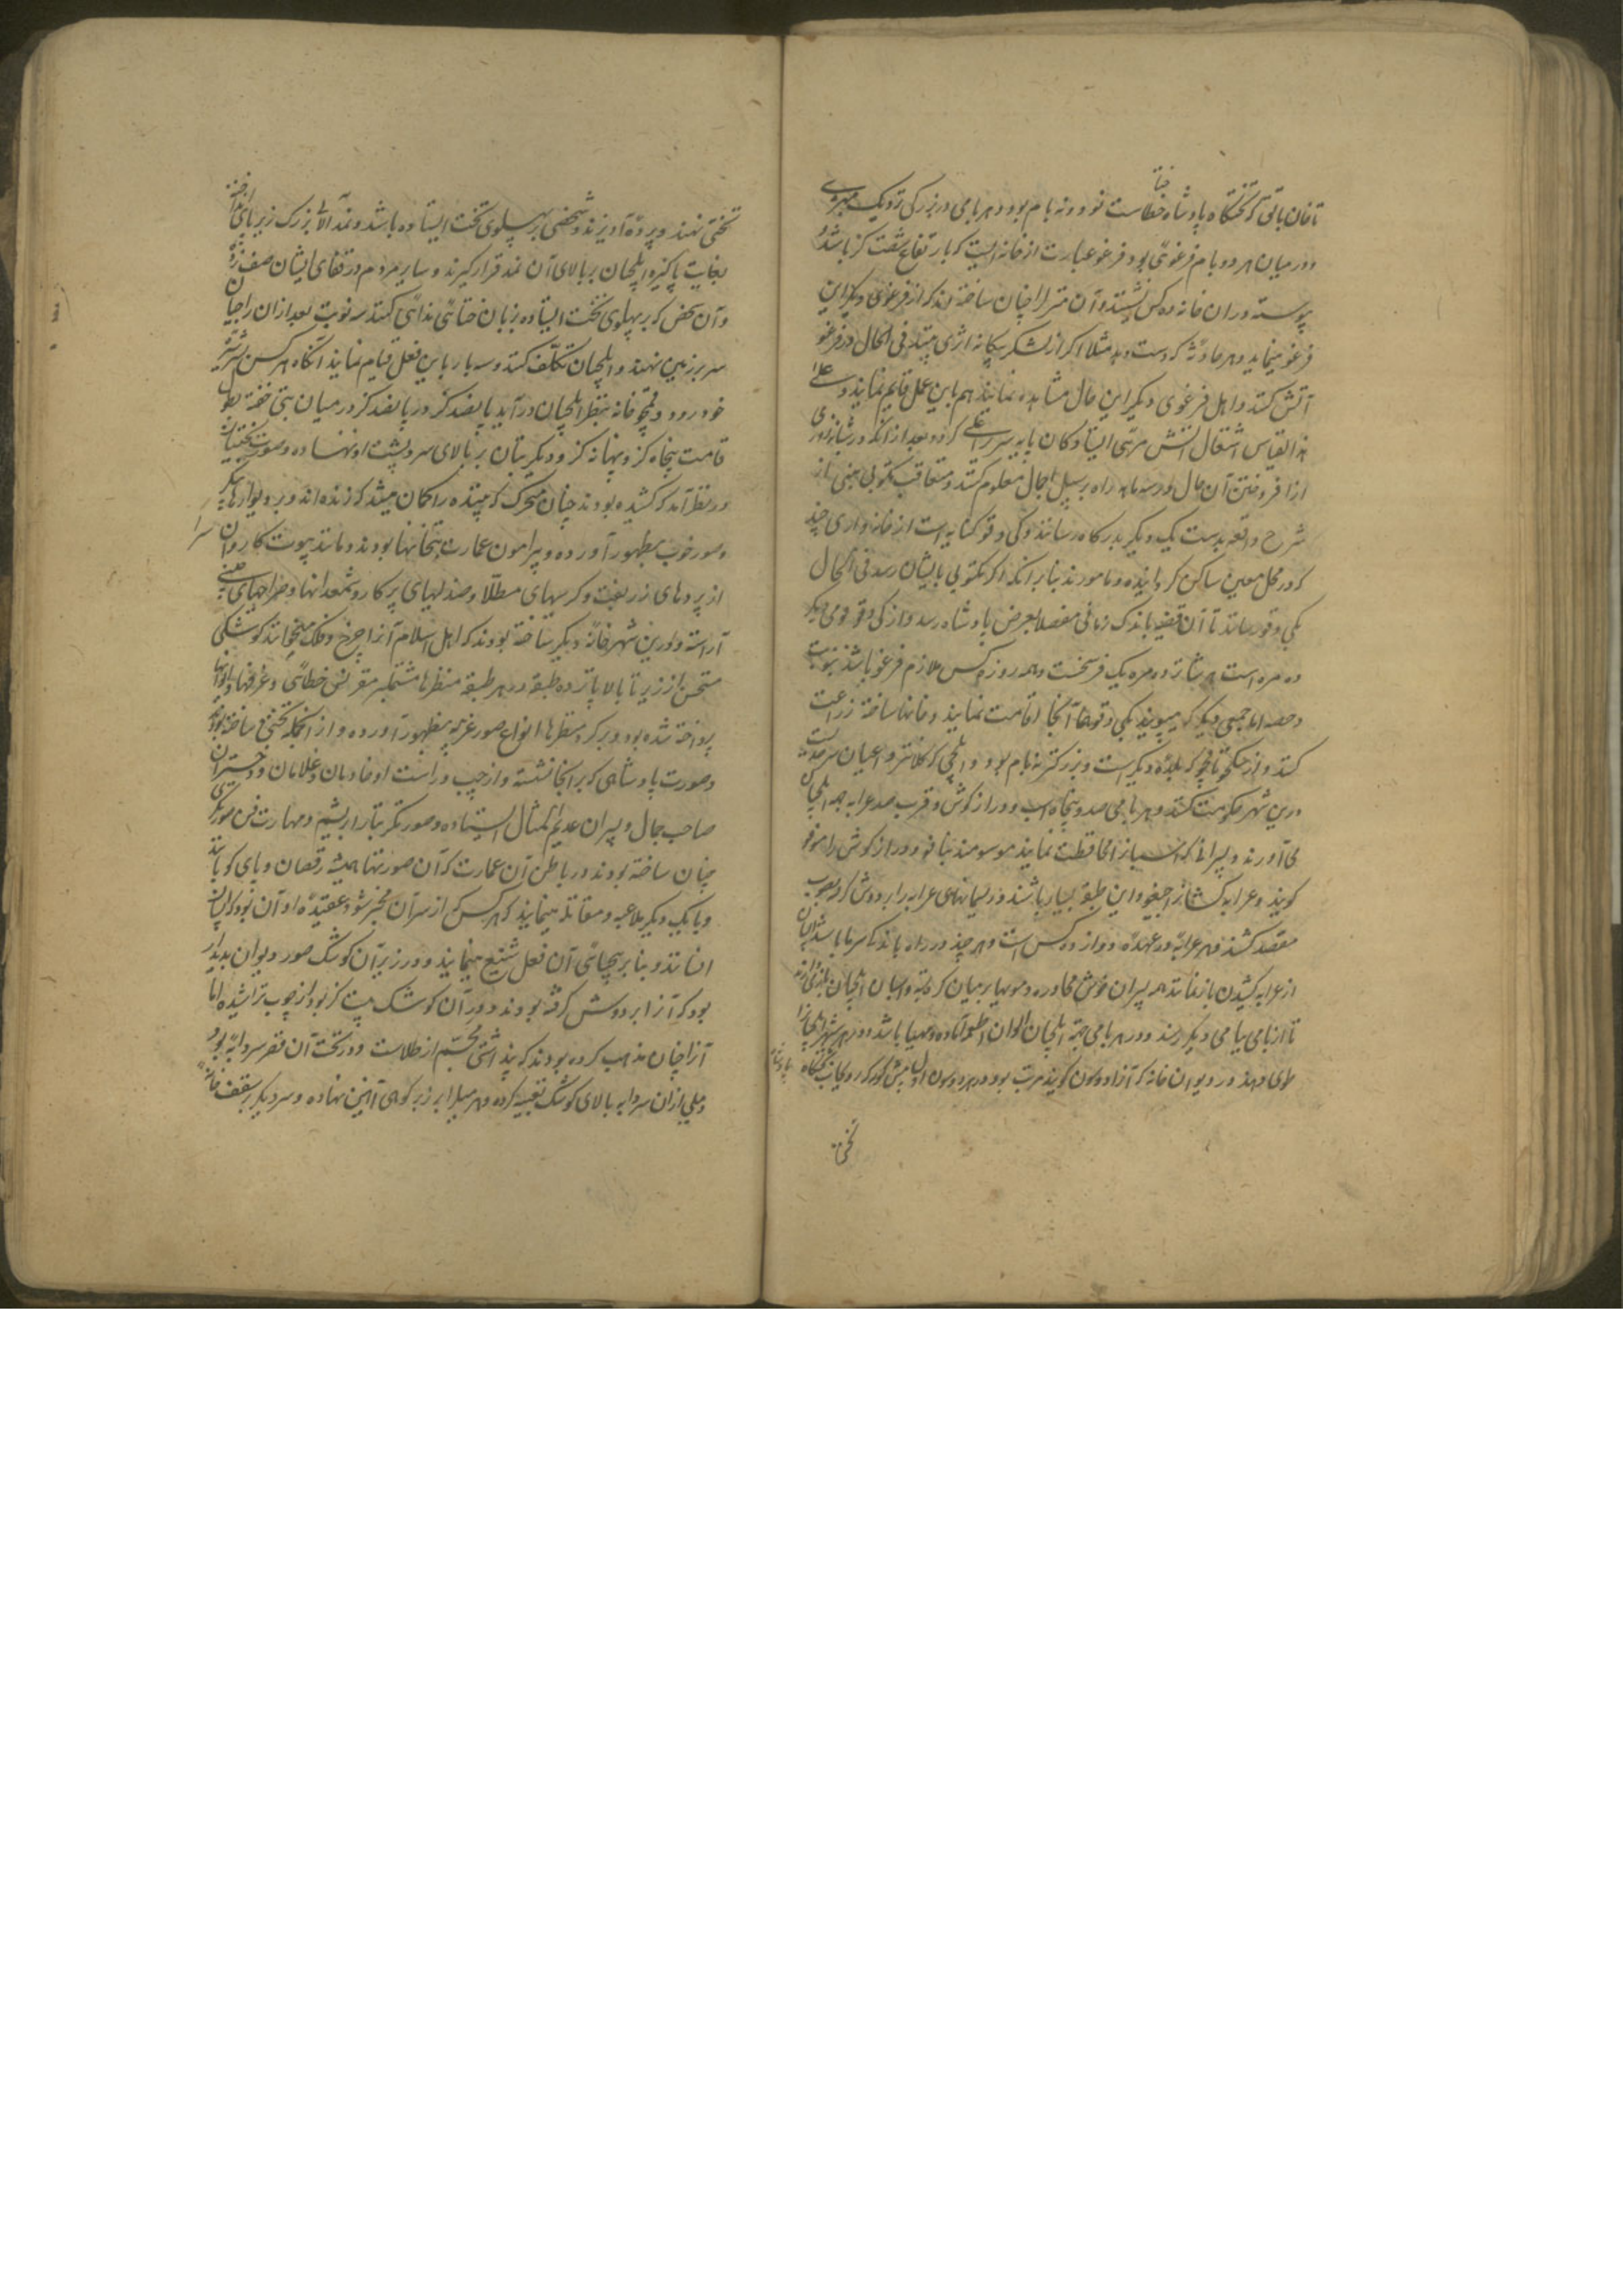 ختا
تا خان بالق که تختگاه پادشاه خطاست نود و نه بام بود و هر بامی در بزرگی نزدیک بشهری
و در میان هر دو بام قرغوئی بود و قرغو عبارت از خانه ایست که بارتفاع شصت گز باشد و
پیوسته در ان خانه ده کس نشینند و آن منزل را چنان ساخته اند که از قرغوی دیگر این
قرغو مینماید و هر حادثه که دست دهد مثلا اگر از لشکر بیگانه اثری بینند فی الحال در قرغو
آتش کنند و اهل قرغوی دیگر این حال مشاهده نمایند هم باین عمل قیام نمایند و علی
هذا القیاس اشتغال آتش
از افروختن آن حال در سه ماهه راه بر سبیل اجمال معلوم کنند و متعاقب مکتوبی مبنی از
شرح واقعه بدست یک دیگر بدرگاه رسانند و کی دقو کنایه است از خانه واری چند
که در محل معین ساکن گردانیده و مامورند بنابر آنکه اگر مکتوبی بایشان رسد فی الحال
بکی دقو رسانند تا آن قضیه باندک زمانی مفصلا بعرض پادشاه رسد و از کی دقو قومی دیگر
ده مره است هر شانزده مره یک فرسخست و همه روزه کس ملازم قرغو باشند بنوبت
و حصه اما جمعی دیگر که بکی دقو آنجا اقامت نمایند و خانها ساخته زراعت
کنند و از سکجو تا قمجو که بلده دیگر است و بزرگتر نه بام بود و ایلچی که کلانتر و اعیان سرحد
درین شهر حکومت کنند و هر بامی صد و پنجاه اسب و دراز گوش و قرب صد عرابه جهه ایلچیان
می آورند و پسرانی که اسبان را محافظت نمایند موسومند ببافو و دراز گوش را موفو
گویند و عرابه کشانرا جیفو و این طبقه بسیار باشند و ریسمانهای عرابه را بر دوش گرفته بصوب
مقصد کشند و هر عرابه در عهده دوازده کس است و هر چند در راه باشد
از عرابه کشیدن بازنمانند همه پسران خوش محاوره و مویها بر میان گره بسته و اسبان ایلچیان
تا از بامی ببامی دیگر رسند و در هر بامی جهة ایلچیان الوان اطعمه آماده و مهیا باشد و در هر شهر ایلچیانرا
طوی دهند در دیوان خانه که آنرا دوسون گویند مرتب بود و در هر دوسون اول پیش کورکه رو بجانب تختگاه پادشاه
تختی
تختی نهند و پرده آویزند و شخصی بر پهلوی تخت ایستاده باشد و نمد آلای بزرگ زیر پای انداخته
بغایت پاکیزه ایلچیان بر بالای آن نمد قرار گیرند و سایر مردم در قفای ایشان صف زده
و آن شخص که بر پهلوی تخت ایستاده بزبان ختائی ندائی کند سه نوبت بعد از ان
سر بر زمین نهند و ایلچیان تکلف کنند و سه بار باین فعل قیام نمایند آنگاه هر کس بر سر شیره
خود رود و در قمجو بتخانه بنظر ایلچیان درآید پانصد گز در پانصد گز در میان بتی خفته بطول
قامت پنجاه گز و پهنانه گز و دیگر بتان بر بالای سر و پشت او نهاده و صورت
در نظر آمد که کشیده بودند چنان متحرک که بیننده را گمان میشد که زنده اند و بر دیوارها
و صور خوب بظهور آورده و پیرامون عمارت بتخانها بودند و مانند بیوت کاروان
سرا
از پردهای زربفت و کرسیهای مطلا و صندلیهای پرکار و شمعدانها و صراحیهای چینی
آراسته و در این شهر خانه دیگر ساخته بودند که اهل اسلام آنرا چرخ فلک میخوانند کوشکی
مثمن از زیر تا بالا پانزده طبقه در هر طبقه منظرها مشتمل بر مقرنس خطائی و غرفها و ایوانها
پرداخته شده بود و بر گرد منظرها انواع صور غریبه بظهور آورده و از آنجمله تختی ساخته بودند
و صورت پادشاهی که بر آنجا نشسته و از چپ و راست او خادمان و غلامان و دختران
صاحب جمال و پسران عدیم المثال ایستاده و صورتگر بتار ابریشم و مهارت فن صورتگری
چنان ساخته بودند در باطن آن عمارت که آن صورتها همیشه رقصان و پای کوبانند
و با یک دیگر ملاعبه و معانقه مینمایند که هر کس که از سر آن مخبر نشود عقیده او آن بود که
و بنابر بیحیائی آن فعل شنیع مینمایند و در زیر آن کوشک صور دیوان پدیدار
بود که آنرا بر دوش گرفته بودند و دور آن کوشک بیست گز بود از چوب تراشیده اما
آنرا چنان مذهب کرده بودند که پنداشتی مجسم از طلاست و در تحت آن قصر سردابه بود
و میلی ازان سردابه بالای کوشک تعبیه کرده و هر میل را بر زبر کوهی آهنین نهاده و سر دیگر بر سقف خانه